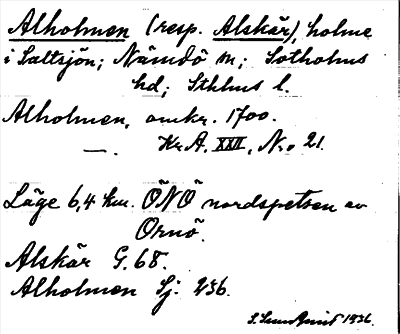 Alholmen (resp. Alskär), holme
i Saltsjön; Nämdö sn; Sotholms
hd; Sthlms l.
Alholmen, omkr. 1700.
—„— Kr.A. XXII, Nr. 21.
Läge 6,4 km. ÖNÖ nordspetsen av
Ornö.
Alskär G. 68.
Alholmen Sj. 236.
1936.